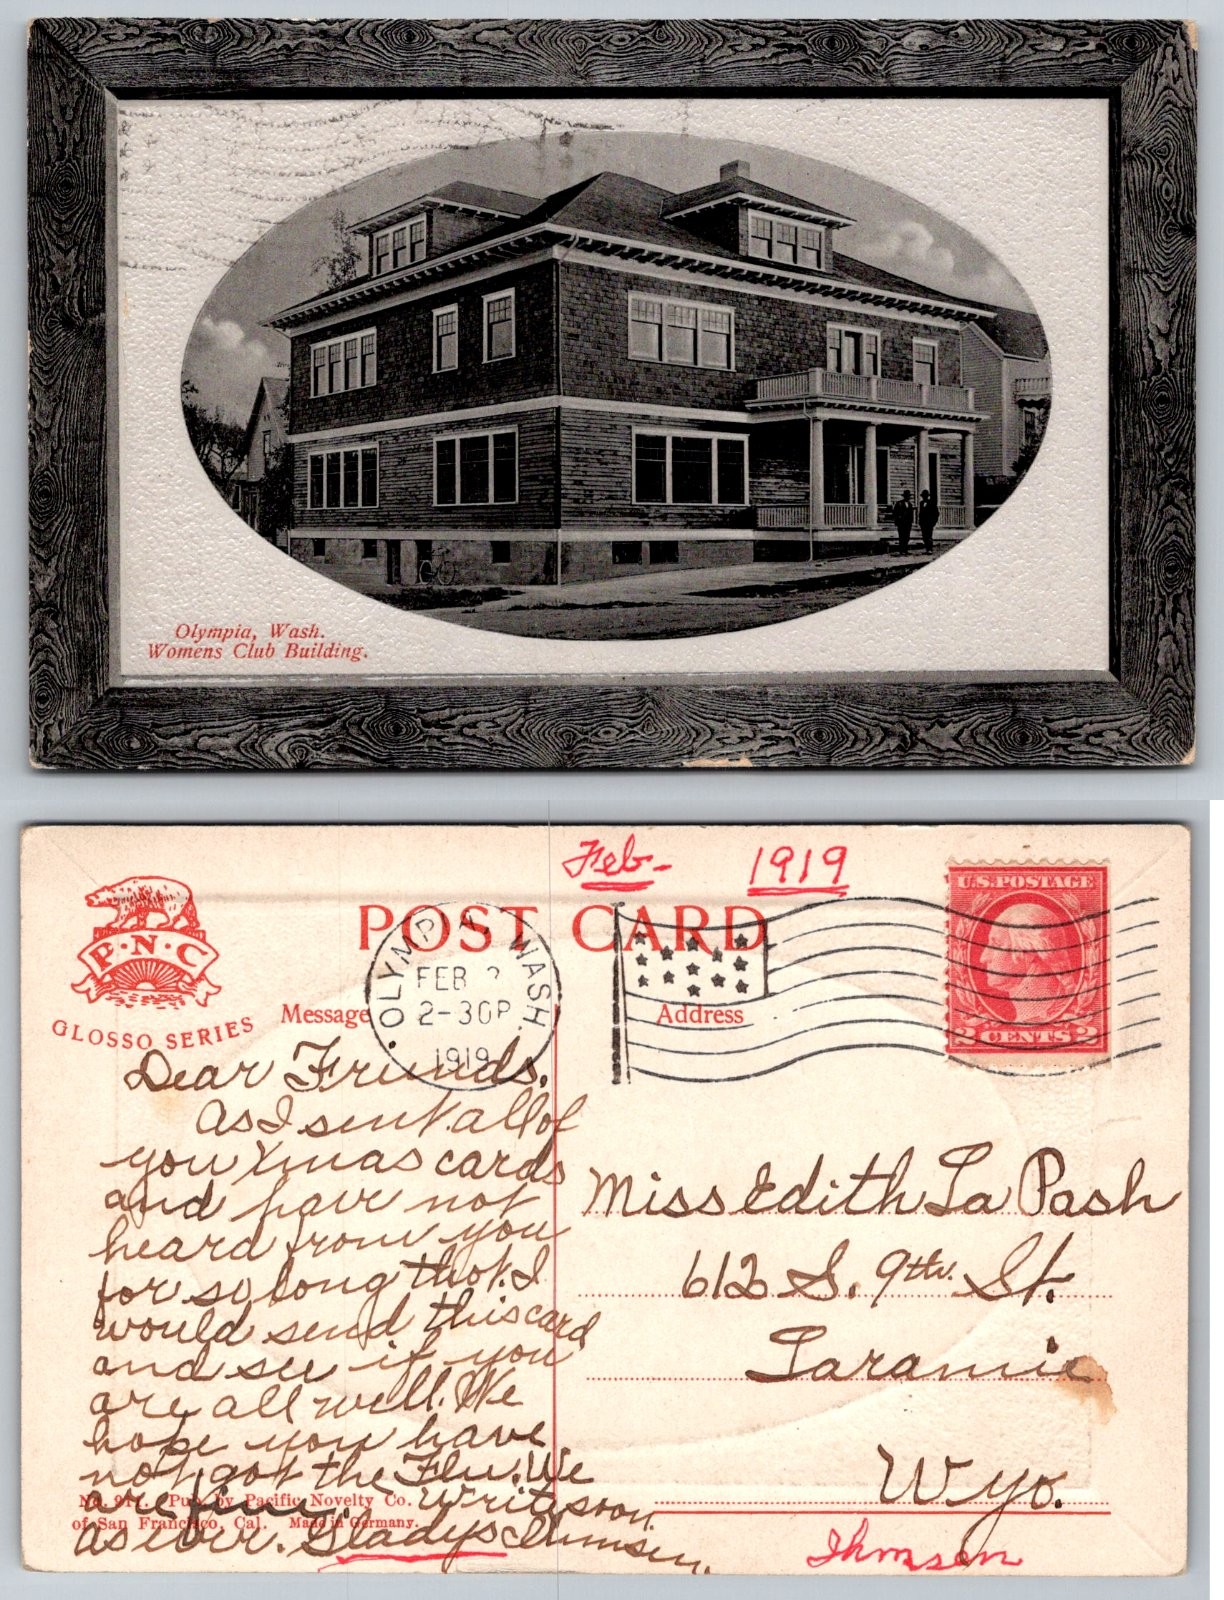 Olympia, Wash.
Womens Club Building.
Feb- 1919
P·N·C
GLOSSO SERIES
POST CARD
Message
Address
OLYMPIA, WASH.
FEB
2-30P
1919
U.S. POSTAGE
2 CENTS 2
Dear Friends.
As I sent all of
you Xmas cards
and have not
heard from you
for so long that I
would send this card
and see if you
are all well. We
hope you have
not got the Flu. We
are fine. Write soon.
As ever. Gladys Ihmsen.
Miss Edith La Pash
612 S. 9th. St.
Laramie
Wyo.
Ihmsen
No. 917. Pub. by Pacific Novelty Co.
of San Francisco, Cal. Made in Germany.